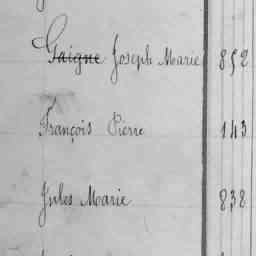 Gaigne Joseph Marie 852
François Pierre 143
Jules Marie 838